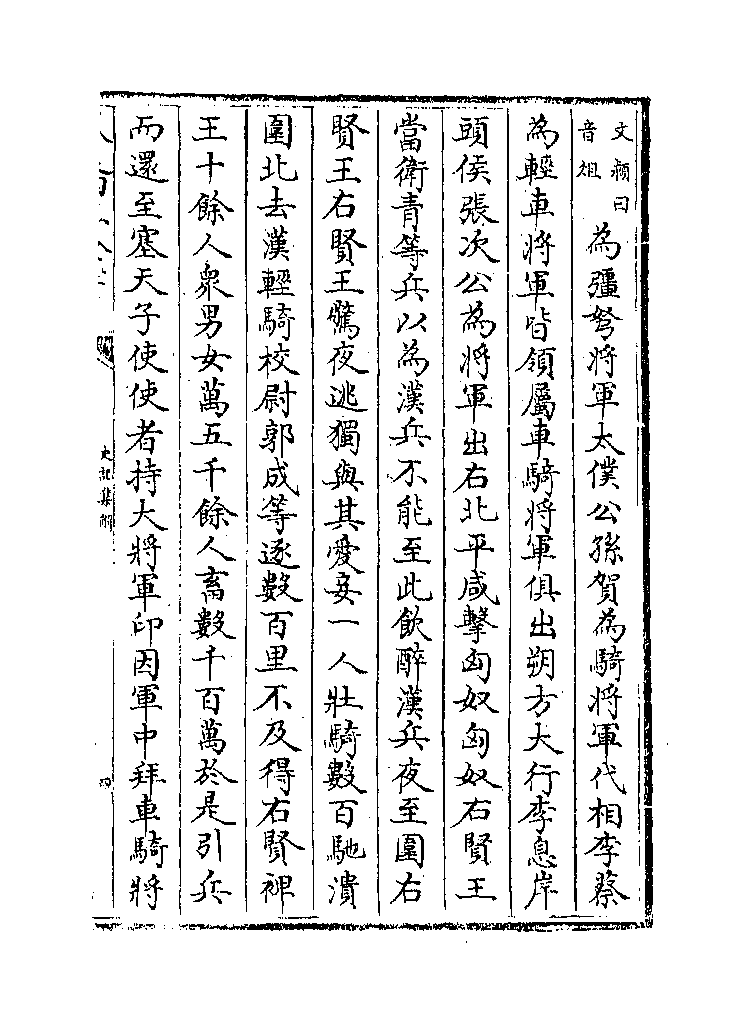 文穎曰
音俎
為彊弩將軍太僕公孫賀為騎將軍代相李蔡
為輕車將軍皆領屬車騎將軍俱出朔方大行李息岸
頭侯張次公為將軍出右北平咸擊匈奴匈奴右賢王
當衛青等兵以為漢兵不能至此飲醉漢兵夜至圍右
賢王右賢王驚夜逃獨與其愛妾一人壯騎數百馳潰
圍北去漢輕騎校尉郭成等逐數百里不及得右賢裨
王十餘人衆男女萬五千餘人畜數千百萬於是引兵
而還至塞天子使使者持大將軍印因軍中拜車騎將
史記集解
四